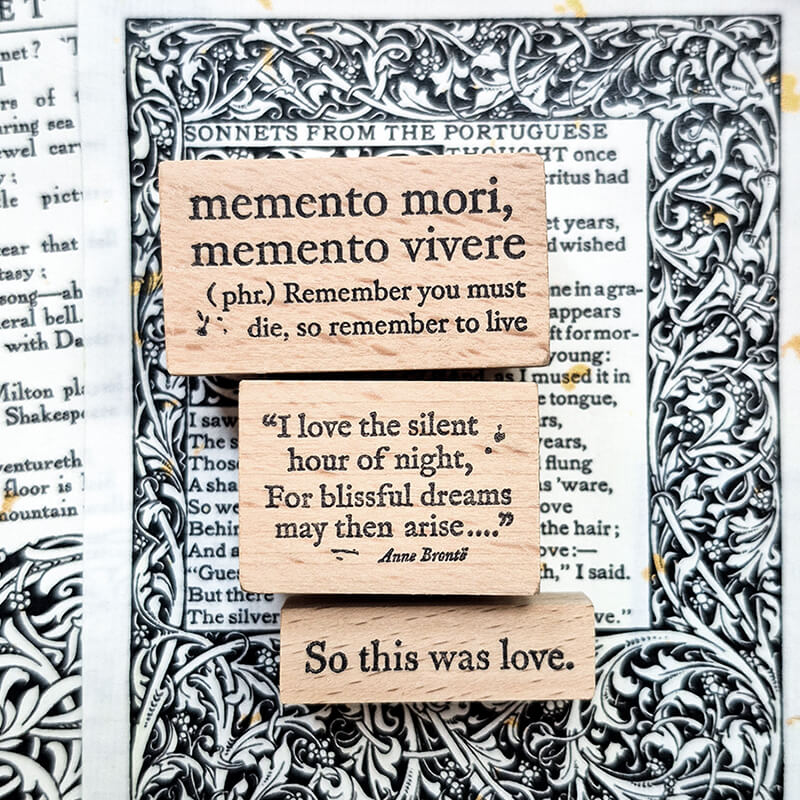 ET
net ?
rs of
uring sea
ewel
le
ear that
tasy ;
song—ah
eral bell.
with
Milton
Shakespe
entureth
floor is
mountain
SONNETS FROM THE PORTUGUESE
THOUGHT once
critus had
et years,
d wished
ne in a gra-
appears
ft for mor-
young:
And, as I mused it in
e tongue,
I saw
rs,
The s
ears,
Those
flung
A sha
s 'ware,
So we
ove
Behin
the hair ;
And a
ove:—
“Gues
h,” I said.
But there
The silver
ve.”
memento mori,
memento vivere
(phr.) Remember you must
die, so remember to live
“I love the silent
hour of night,
For blissful dreams
may then arise....”
Anne Brontë
So this was love.